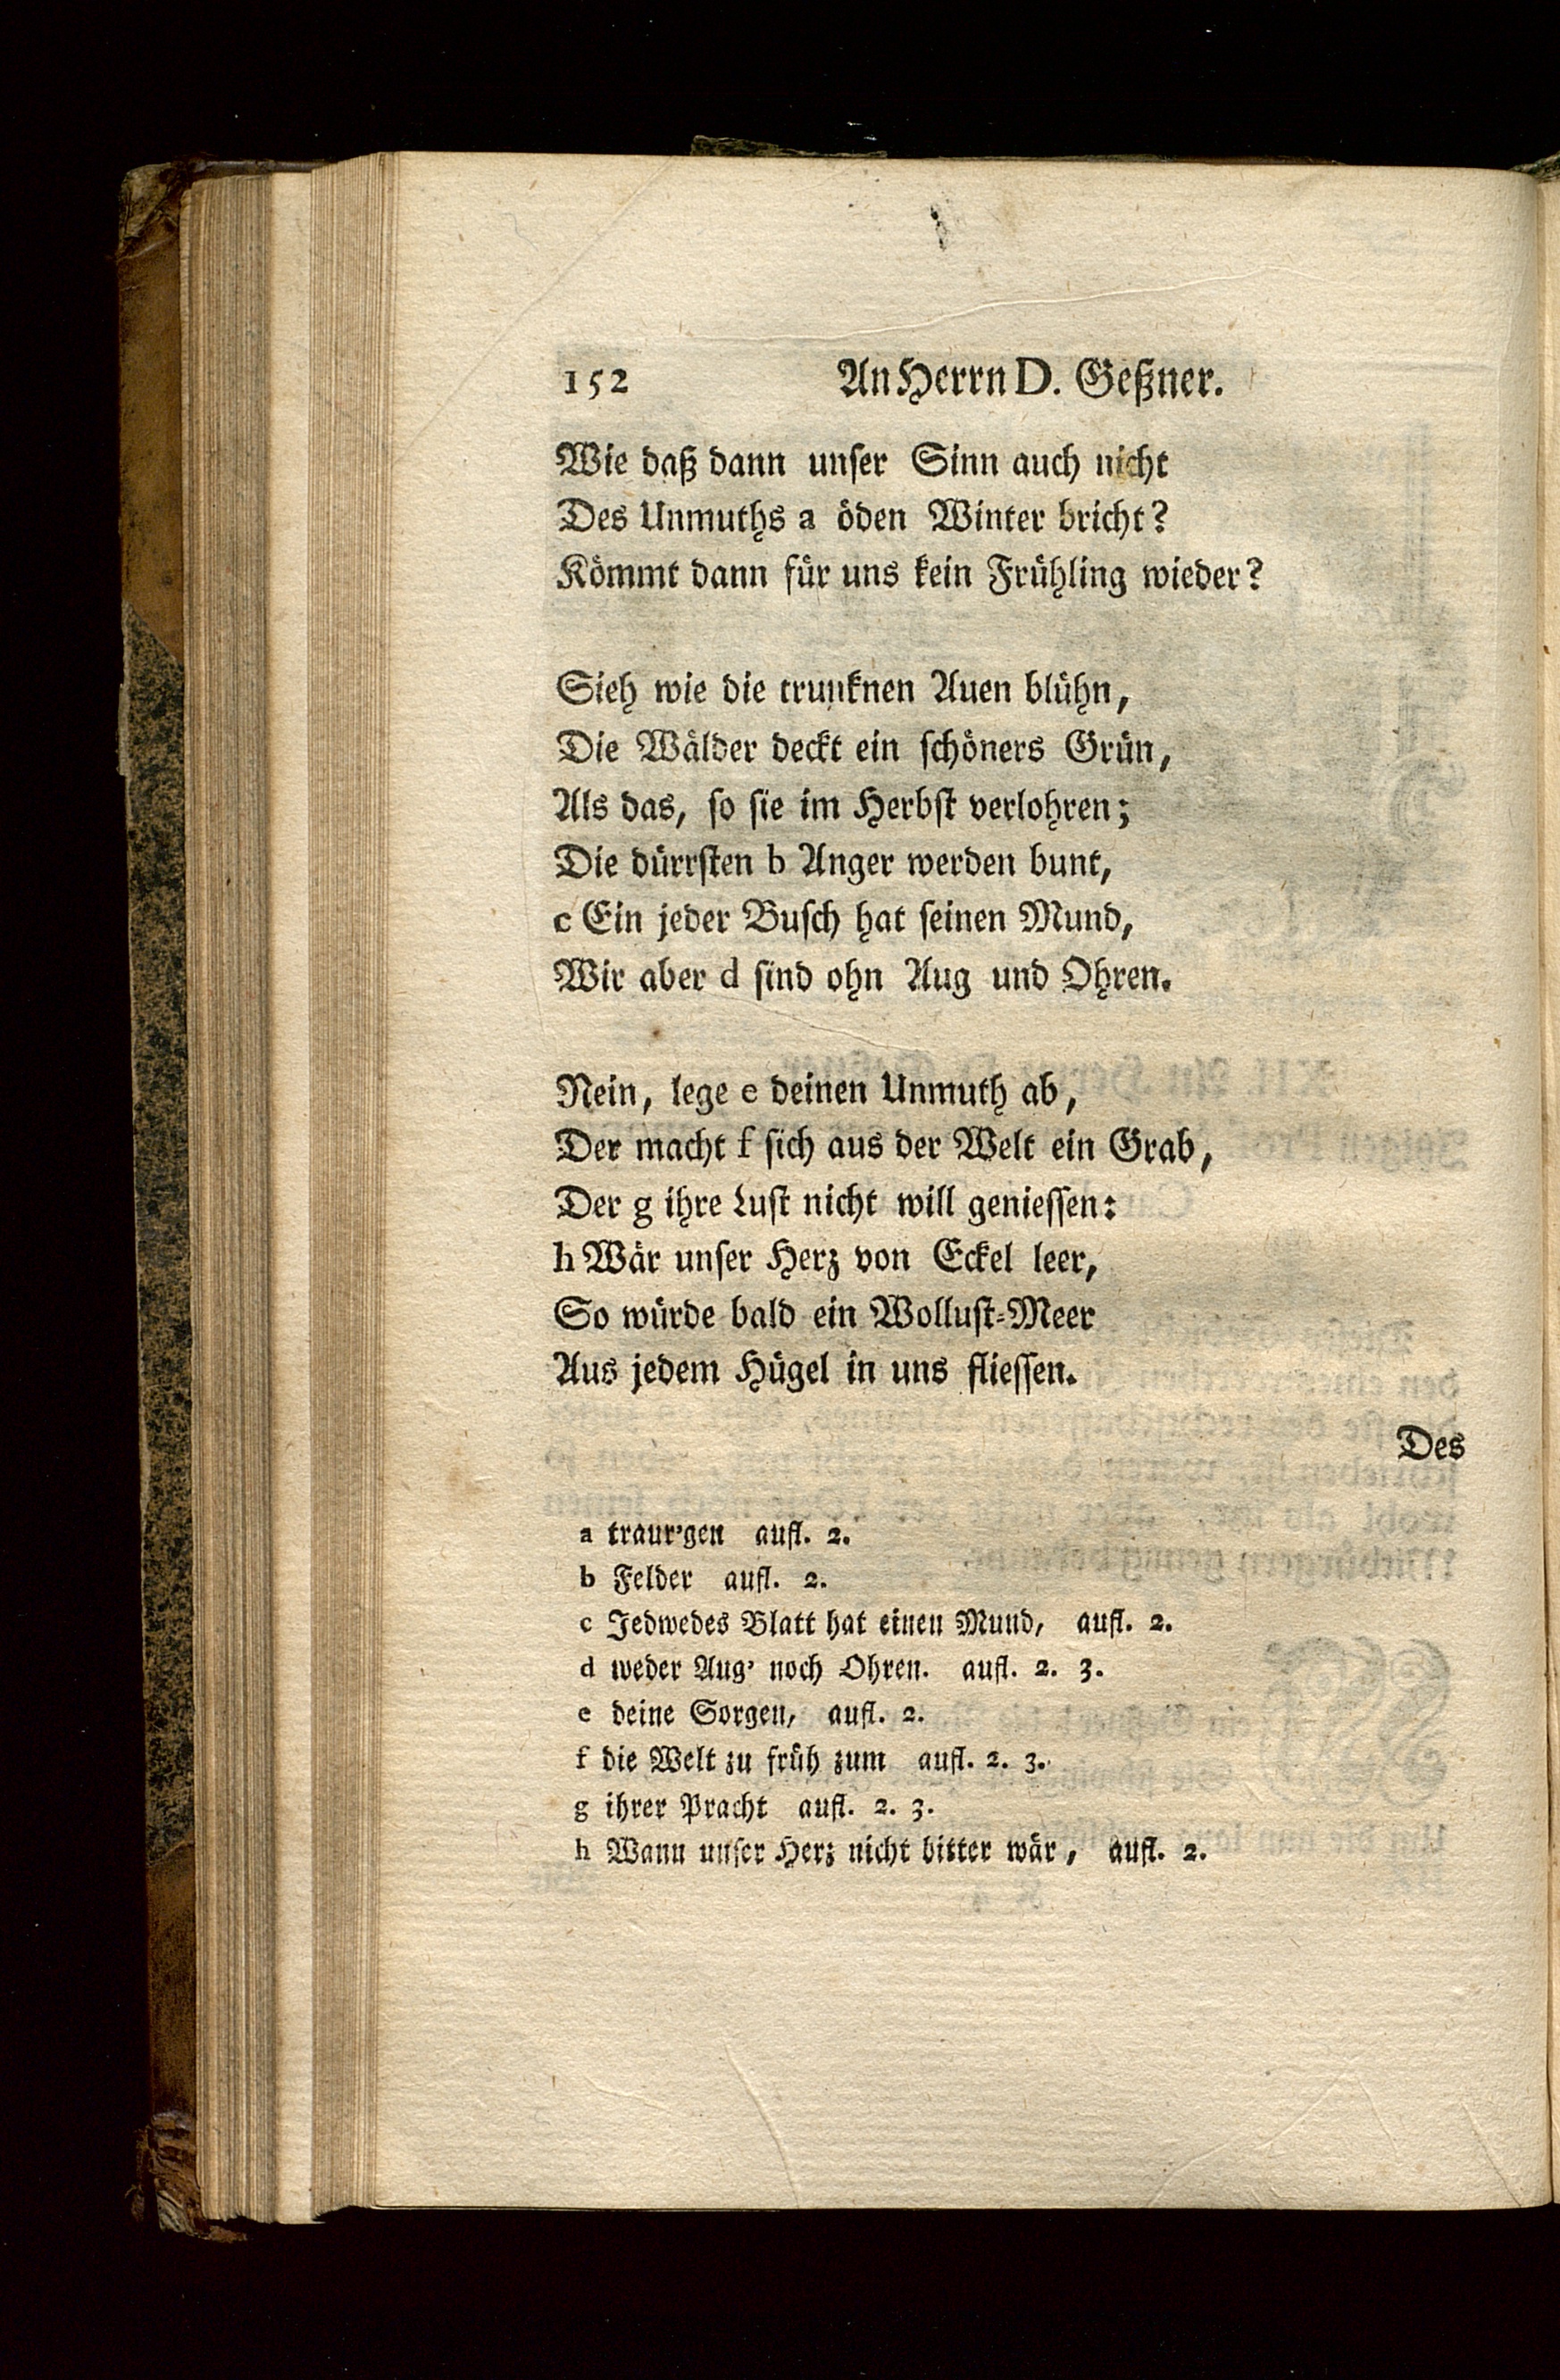 152 An Herrn D. Geßner.
Wie daß dann unser Sinn auch nicht
Des Unmuths a öden Winter bricht?
Kömmt dann für uns kein Frühling wieder?
Sieh wie die trunknen Auen blühn,
Die Wälder deckt ein schöners Grün,
Als das, so sie im Herbst verlohren;
Die dürrsten b Anger werden bunt,
c Ein jeder Busch hat seinen Mund,
Wir aber d sind ohn Aug und Ohren.
Nein, lege e deinen Unmuth ab,
Der macht f sich aus der Welt ein Grab,
Der g ihre Lust nicht will geniessen:
h Wär unser Herz von Eckel leer,
So würde bald ein Wollust-Meer
Aus jedem Hügel in uns fliessen.
Des
a traur'gen aufl. 2.
b Felder aufl. 2.
c Jedwedes Blatt hat einen Mund, aufl. 2.
d weder Aug' noch Ohren. aufl. 2. 3.
e deine Sorgen, aufl. 2.
f die Welt zu früh zum aufl. 2. 3.
g ihrer Pracht aufl. 2. 3.
h Wann unser Herz nicht bitter wär, aufl. 2.